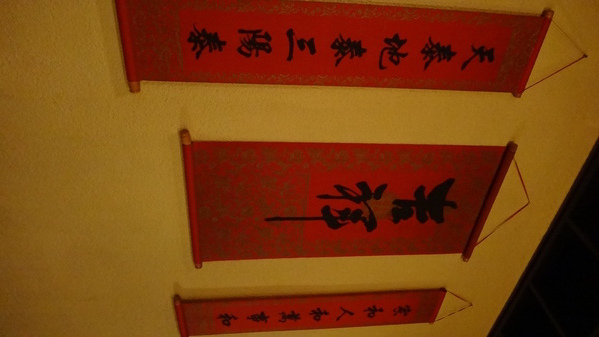 天泰地泰三陽泰
吉祥
家和人和萬事和